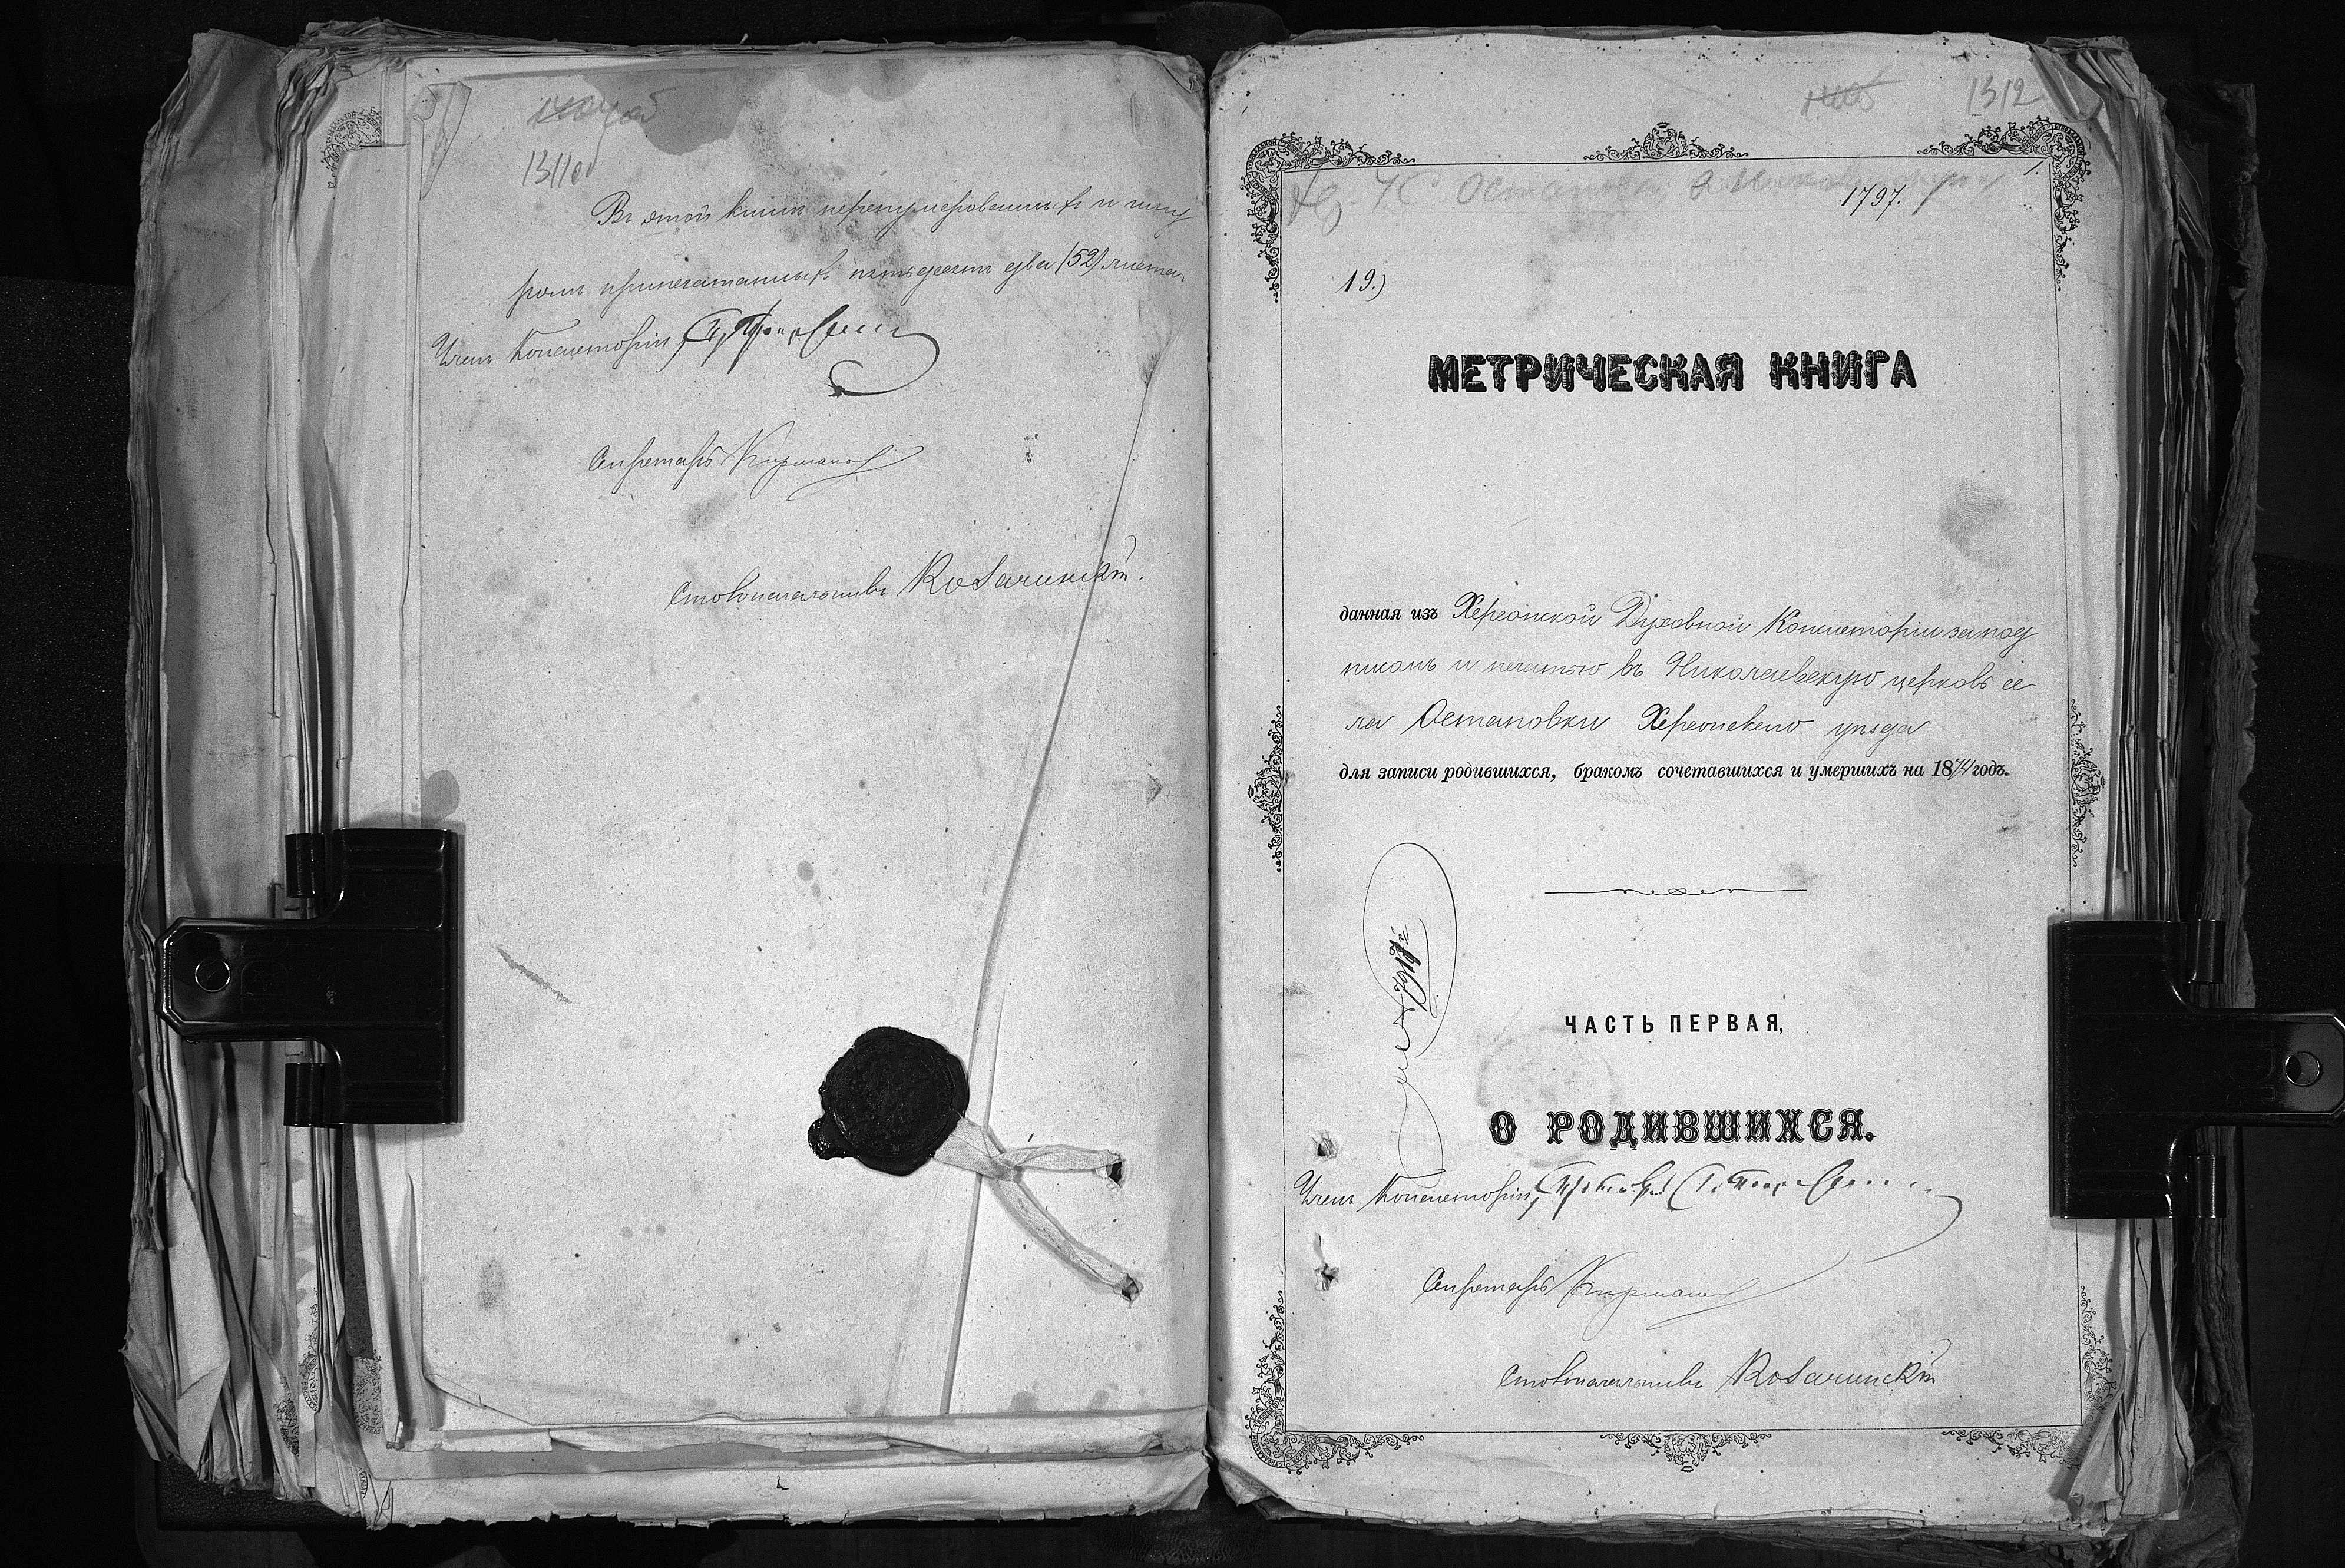 1311об
Въ этой книгѣ перенумерованныхъ и шну
ромъ припечатанныхъ пятьдесятъ два (52) листа.
Членъ Консисторіи,
Секретарь
Столоначальникъ
1312
1.
1797.
19.)
МЕТРИЧЕСКАЯ КНИГА
данная изъ Херсонской Духовной Консисторіи за под
писомъ и печатью въ Николаевскую церковь се
ла Остановки Херсонскаго уѣзда
для записи родившихся, бракомъ сочетавшихся и умершихъ на 1874 годъ.
ЧАСТЬ ПЕРВАЯ,
О РОДИВШИХСЯ.
Членъ Консисторіи,
Секретарь
Столоначальникъ